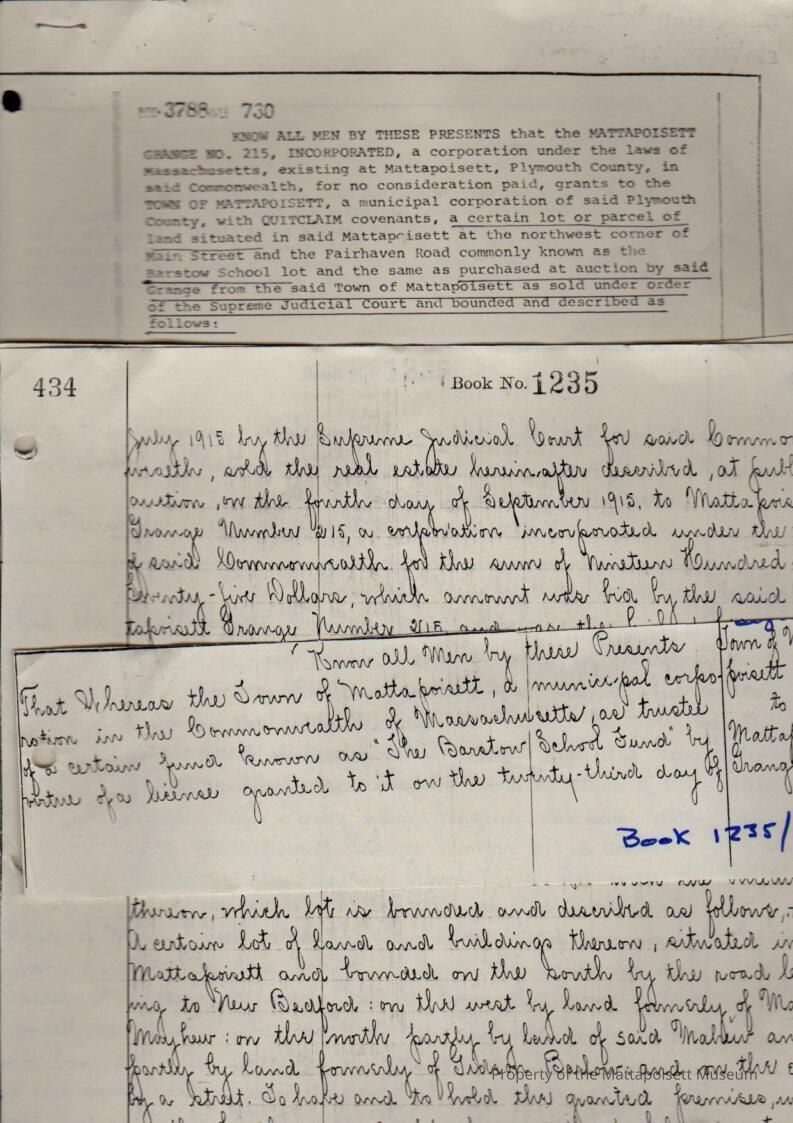 3788 730
KNOW ALL MEN BY THESE PRESENTS that the MATTAPOISETT
GRANGE NO. 215, INCORPORATED, a corporation under the laws of
Massachusetts, existing at Mattapoisett, Plymouth County, in
said Commonwealth, for no consideration paid, grants to the
TOWN OF MATTAPOISETT, a municipal corporation of said Plymouth
County, with QUITCLAIM covenants, a certain lot or parcel of
land situated in said Mattapoisett at the northwest corner of
Main Street and the Fairhaven Road commonly known as the
Barstow School lot and the same as purchased at auction by said
Grange from the said Town of Mattapoisett as sold under order
of the Supreme Judicial Court and bounded and described as
follows:
434 Book No. 1235
July 1915 by the Supreme Judicial Court for said Commo
wealth, sold the real estate hereinafter described, at publ
auction, on the fourth day of September 1915, to Mattapois
Grange Number 215, a corporation incorporated under the
of said Commonwealth for the sum of Nineteen Hundred
Seventy-five Dollars, which amount was bid by the said
tapoisett Grange Number 215 and was the
Know all Men by these Presents
That Whereas the Town of Mattapoisett, a municipal corpo-
ration in the Commonwealth of Massachusetts, as trustee
of a certain fund known as "The Barstow School Fund" by
virtue of a license granted to it on the twenty-third day of
Town of M
poisett
to
Mattap
Grang
Book 1235/
thereon, which lot is bounded and described as follows,
A certain lot of land and buildings thereon, situated in
Mattapoisett and bounded on the south by the road le
ing to New Bedford: on the west by land formerly of Ma
Mayhew: on the north partly by land of said Mahew an
partly by land formerly of Gideon Barlow: and on the e
by a street. To have and to hold the granted premises, w
Property of the Mattapoisett Museum